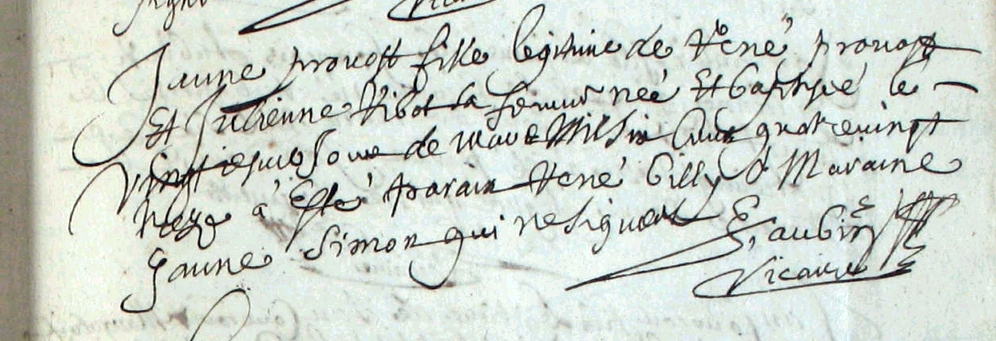 Janne provost fille legitime de René provost
Et Julienne Ribot sa femme née Et baptisée le
vingt jour de mars Mil Six Cens quatrevingt
a Esté parain René Gilly & Maraine
Janne Simon qui ne signent E, aubin
Vicaire